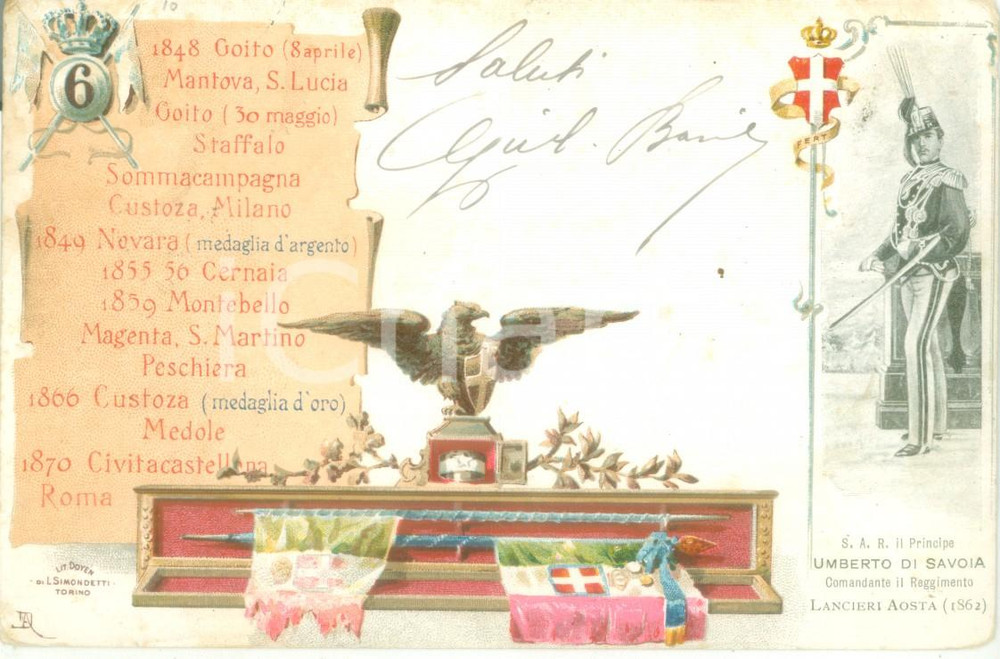 6
1848 Goito (8 aprile)
Mantova, S. Lucia
Goito (30 maggio)
Staffalo
Sommacampagna
Custoza, Milano
1849 Novara (medaglia d'argento)
1855 56 Cernaia
1859 Montebello
Magenta, S. Martino
Peschiera
1866 Custoza (medaglia d'oro)
Medole
1870 Civitacastellana
Roma
LIT. DOYEN
DI L. SIMONDETTI
TORINO
Saluti
FERT
S. A. R. il Principe
UMBERTO DI SAVOIA
Comandante il Reggimento
LANCIERI AOSTA (1862)